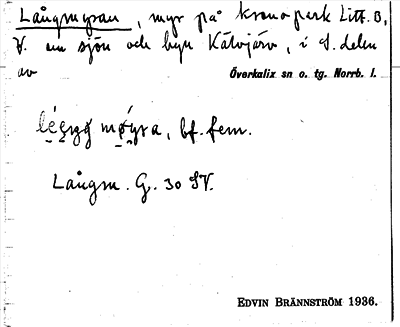 Långmyran, myr på kronopark Litt. B,
V. om sjön och byn Kätvjärv, i S. delen
av Överkalix sn o. tg. Norrb. l.
møyra, bf. fem.
Långm. G. 30 SV.
EDVIN BRÄNNSTRÖM 1936.